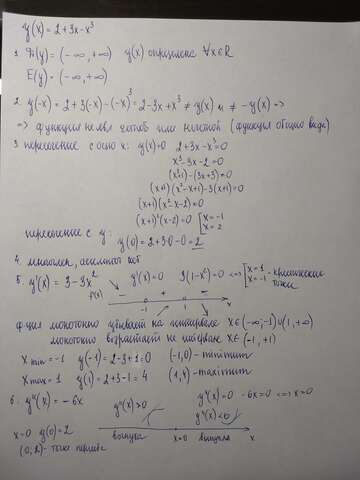 y(x) = 2+3x-x³
1. D(y) = (-∞, +∞) y(x) определена ∀x∈R
E(y) = (-∞, +∞)
2. y(-x) = 2+3(-x)-(-x)³ = 2-3x+x³ ≠ y(x) и ≠ -y(x) =>
=> функция не явл четной или нечетной (функция общего вида)
3 пересечение с осью x: y(x)=0 2+3x-x³=0
x³-3x-2=0
(x³+1)-(3x+3)=0
(x+1)(x²-x+1)-3(x+1)=0
(x+1)(x²-x-2)=0
(x+1)²(x-2)=0 [x=-1 x=2
пересечение с y: y(0)=2+3·0-0=2
4. асимптот нет
5. y'(x) = 3-3x² y'(x)=0 3(1-x²)=0 <=> [x=1 x=-1 - критические точки
- + -
-1 1 x
ф-ция монотонно убывает на интервале x∈(-∞;-1)∪(1,+∞)
монотонно возрастает на интервале x∈(-1,+1)
x min = -1 y(-1)=2-3+1=0 (-1,0) - minimum
x max = 1 y(1)=2+3-1=4 (1,4) - maximum
6. y''(x) = -6x y''(x)=0 -6x=0 <=> x=0
y''(x)>0 y''(x)<0
x=0 y(0)=2 вогнута x=0 выпукла x
(0,2) - точка перегиба